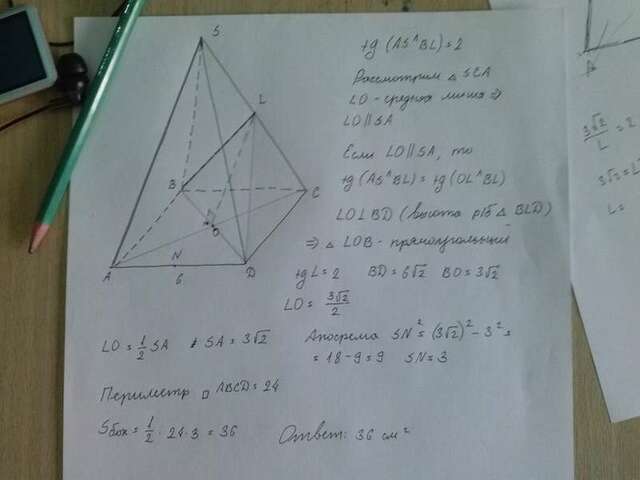 S
L
B
C
O
N
A
6
D
tg (AS^BL) = 2
Рассмотрим △ SCA
LO - средняя линия ⇒
LO || SA
Если LO || SA, то
tg (AS^BL) = tg (OL^BL)
LO ⊥ BD (высота р/б △ BLD)
⇒ △ LOB - прямоугольный
tg L = 2 BD = 6√2 BO = 3√2
LO = 3√2/2
LO = 1/2 SA SA = 3√2
Апофема SN² = (3√2)² - 3² =
= 18 - 9 = 9 SN = 3
Периметр □ ABCD = 24
Sбок = 1/2 · 24 · 3 = 36
Ответ: 36 см²
A
3√2/L = 2
3√2 = L
L =